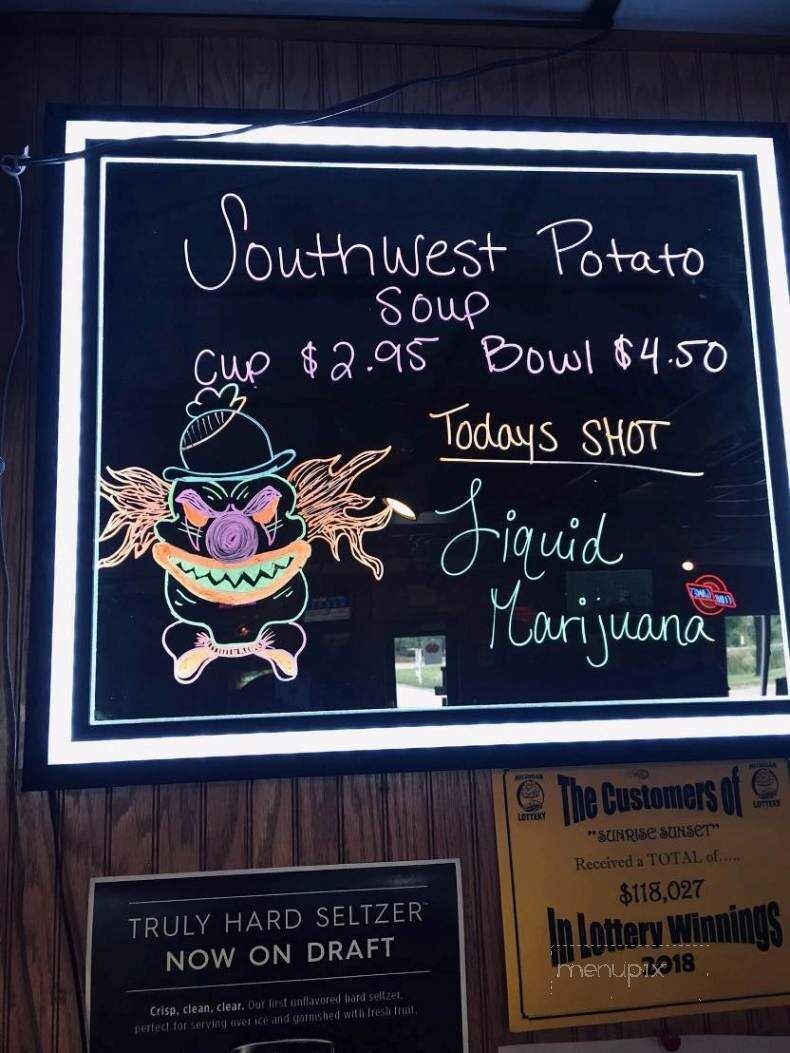 Southwest Potato
Soup
Cup $2.95 Bowl $4.50
Todays SHOT
Liquid
Marijuana
TRULY HARD SELTZER™
NOW ON DRAFT
Crisp, clean, clear. Our first unflavored hard seltzer,
perfect for serving over ice and garnished with fresh fruit.
MICHIGAN
LOTTERY
MICHIGAN
LOTTERY
The Customers of
"SUNRISE SUNSET"
Received a TOTAL of.....
$118,027
In Lottery Winnings
2018
menupix